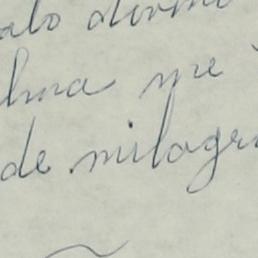 alo divino
lma me
de milagr